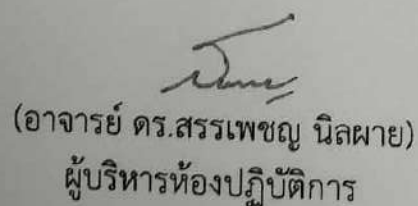 (อาจารย์ ดร.สรรเพชญ นิลผาย)
ผู้บริหารห้องปฏิบัติการ